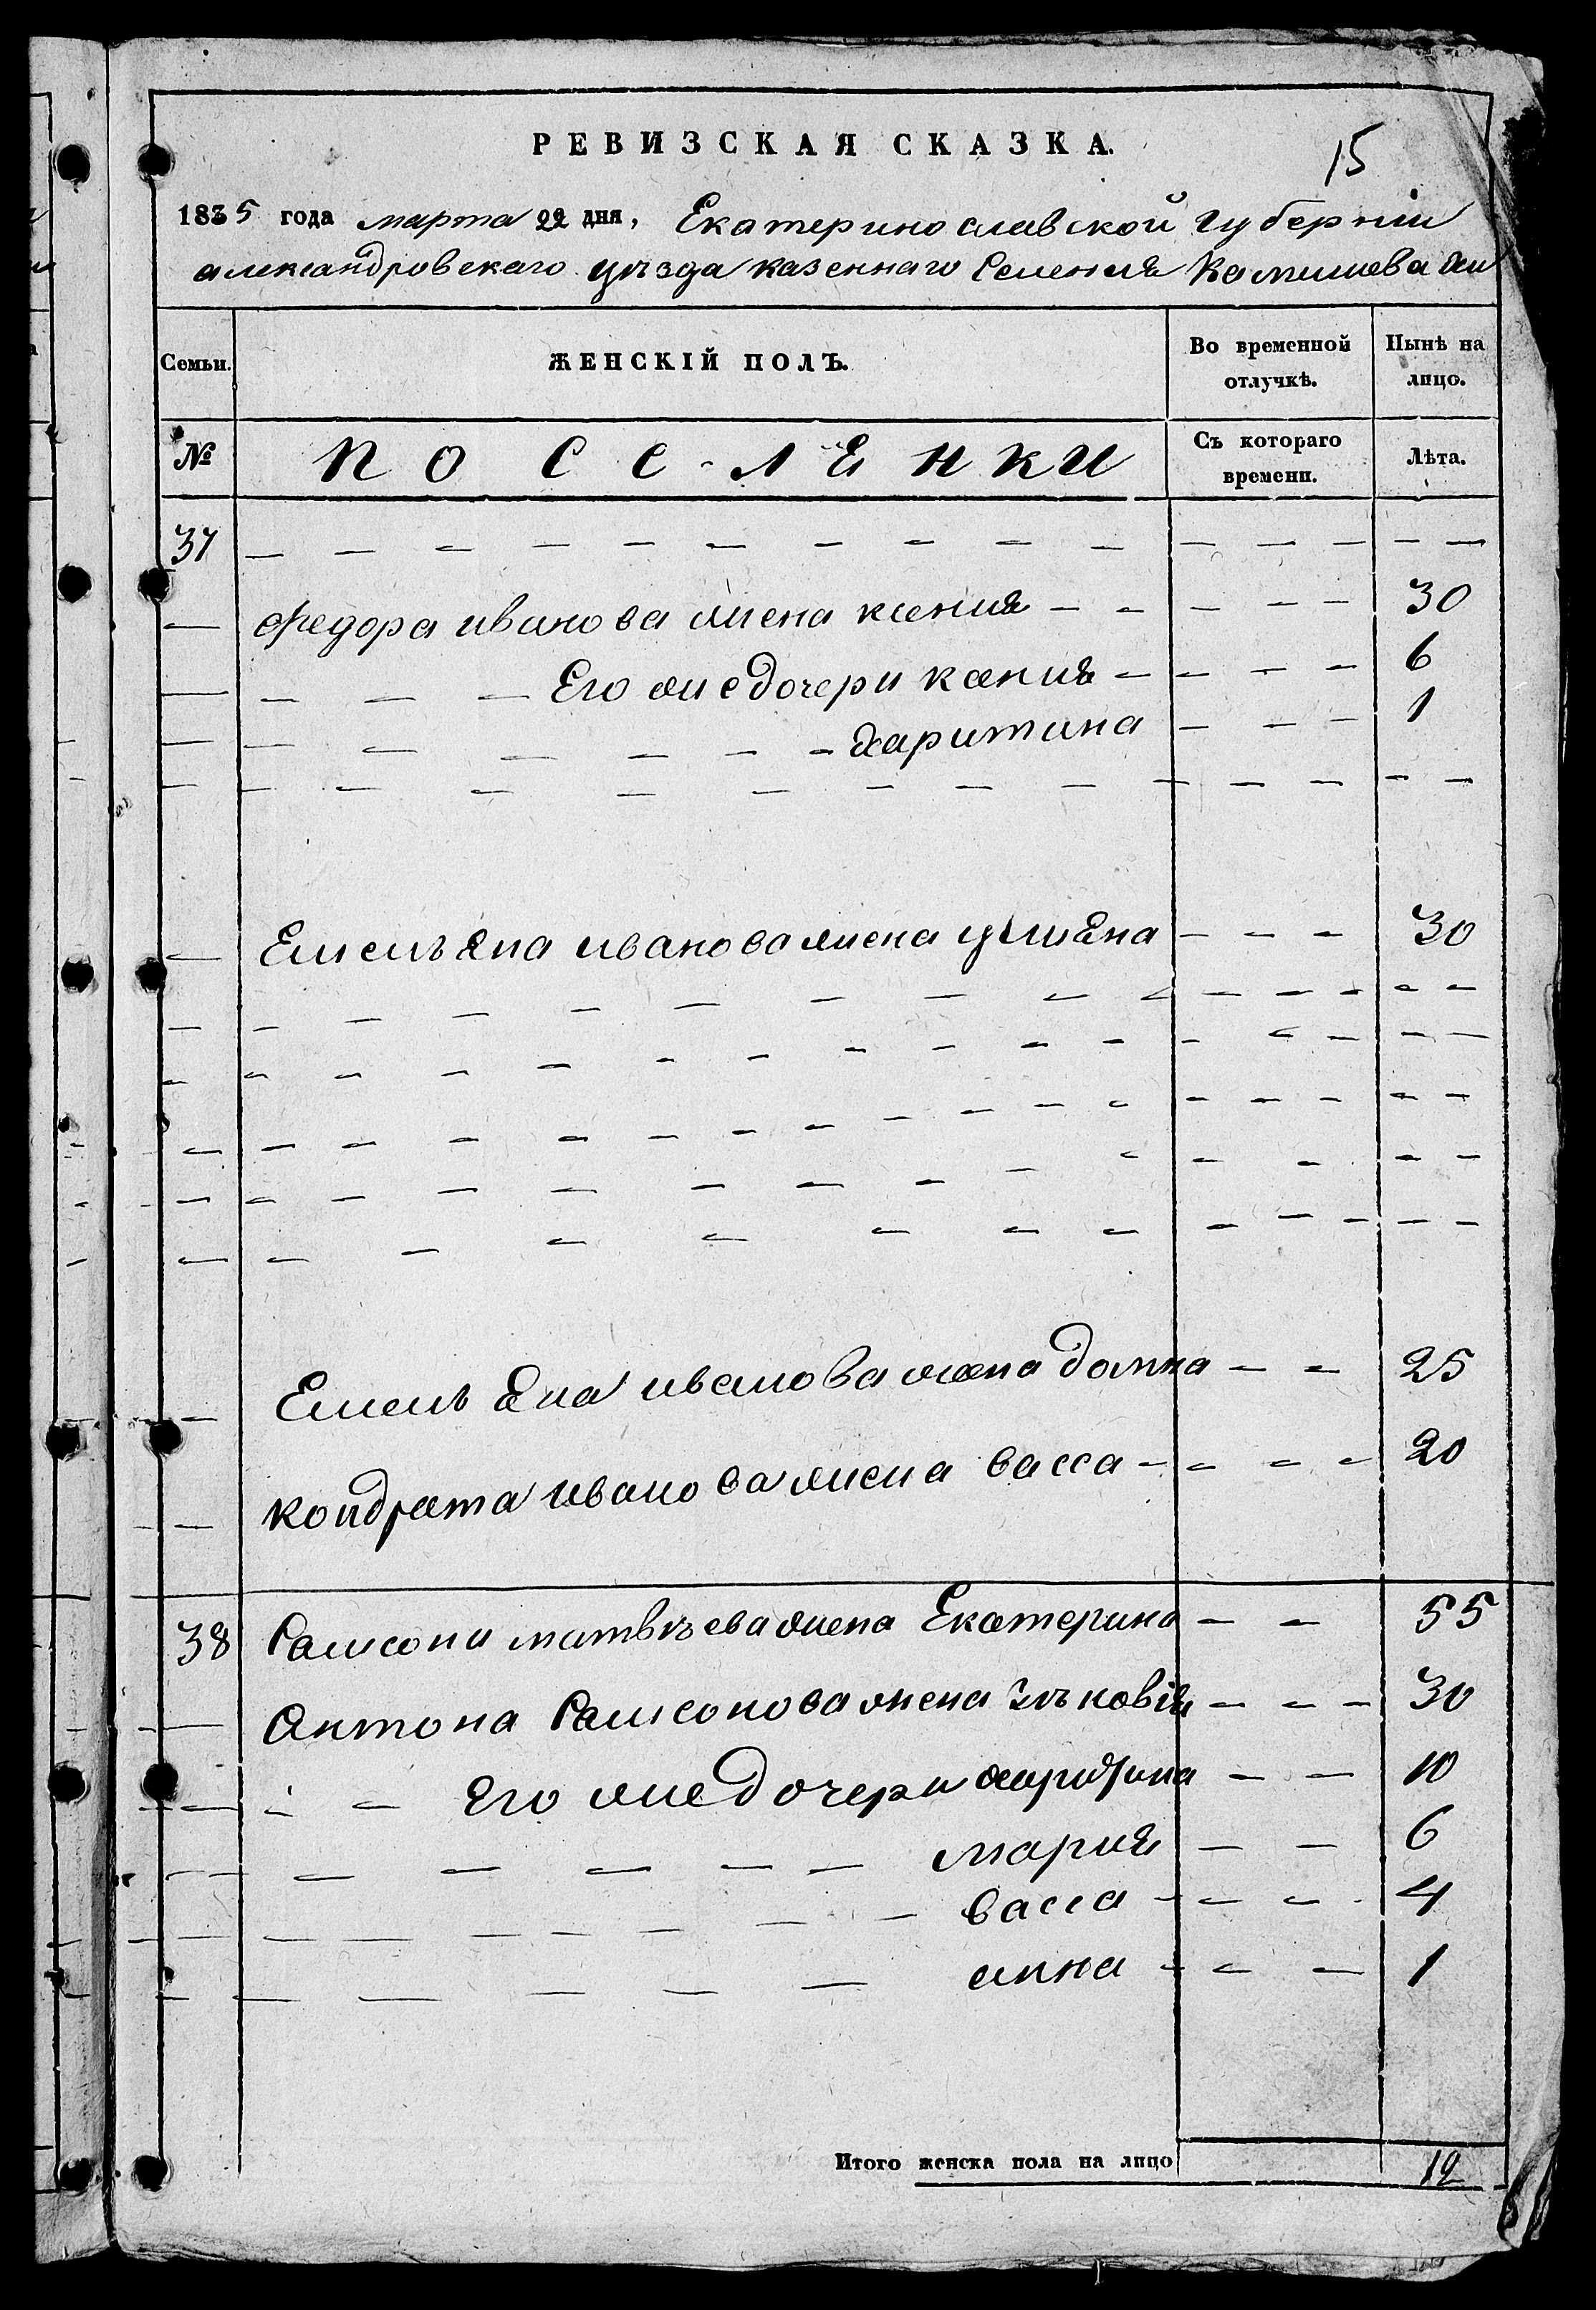 РЕВИЗСКАЯ СКАЗКА.
15
1835 года марта 22 дня, Екатеринославской губернiи
александровскаго уѣзда казеннаго Селения
Семьи. ЖЕНСКIЙ ПОЛЪ. Во временной отлучкѣ. Нынѣ на лицо.
№ ПОССЛЕНКИ Съ котораго времени. Лѣта.
37 — — — — — — — — — — — — — — —
— федора иванова жена ксения — — — — — 30
— — — — Его же дочери ксения — — — — 6
— — — — — — — харитина — — — 1
— — — — — — — — — — — — — —
— Емельяна иванова жена улияна — — — 30
— — — — — — — — — — — — — — —
— — — — — — — — — — — — — — — —
— — — — — — — — — — — — — — — —
— — — — — — — — — — — — — —
— — — — — — — — — — — — — —
— Емельяна иванова жена домна — — 25
— кондрата иванова жена васса — — — — 20
38 Самсона матвѣева жена Екатерина — — 55
— Антона Самсонова жена зѣновiя — — — 30
— — — Его же дочери харитина — — 10
— — — — — — мария — — 6
— — — — — — — васса — — — 4
— — — — — — — анна — — — 1
Итого женска пола на лицо 12